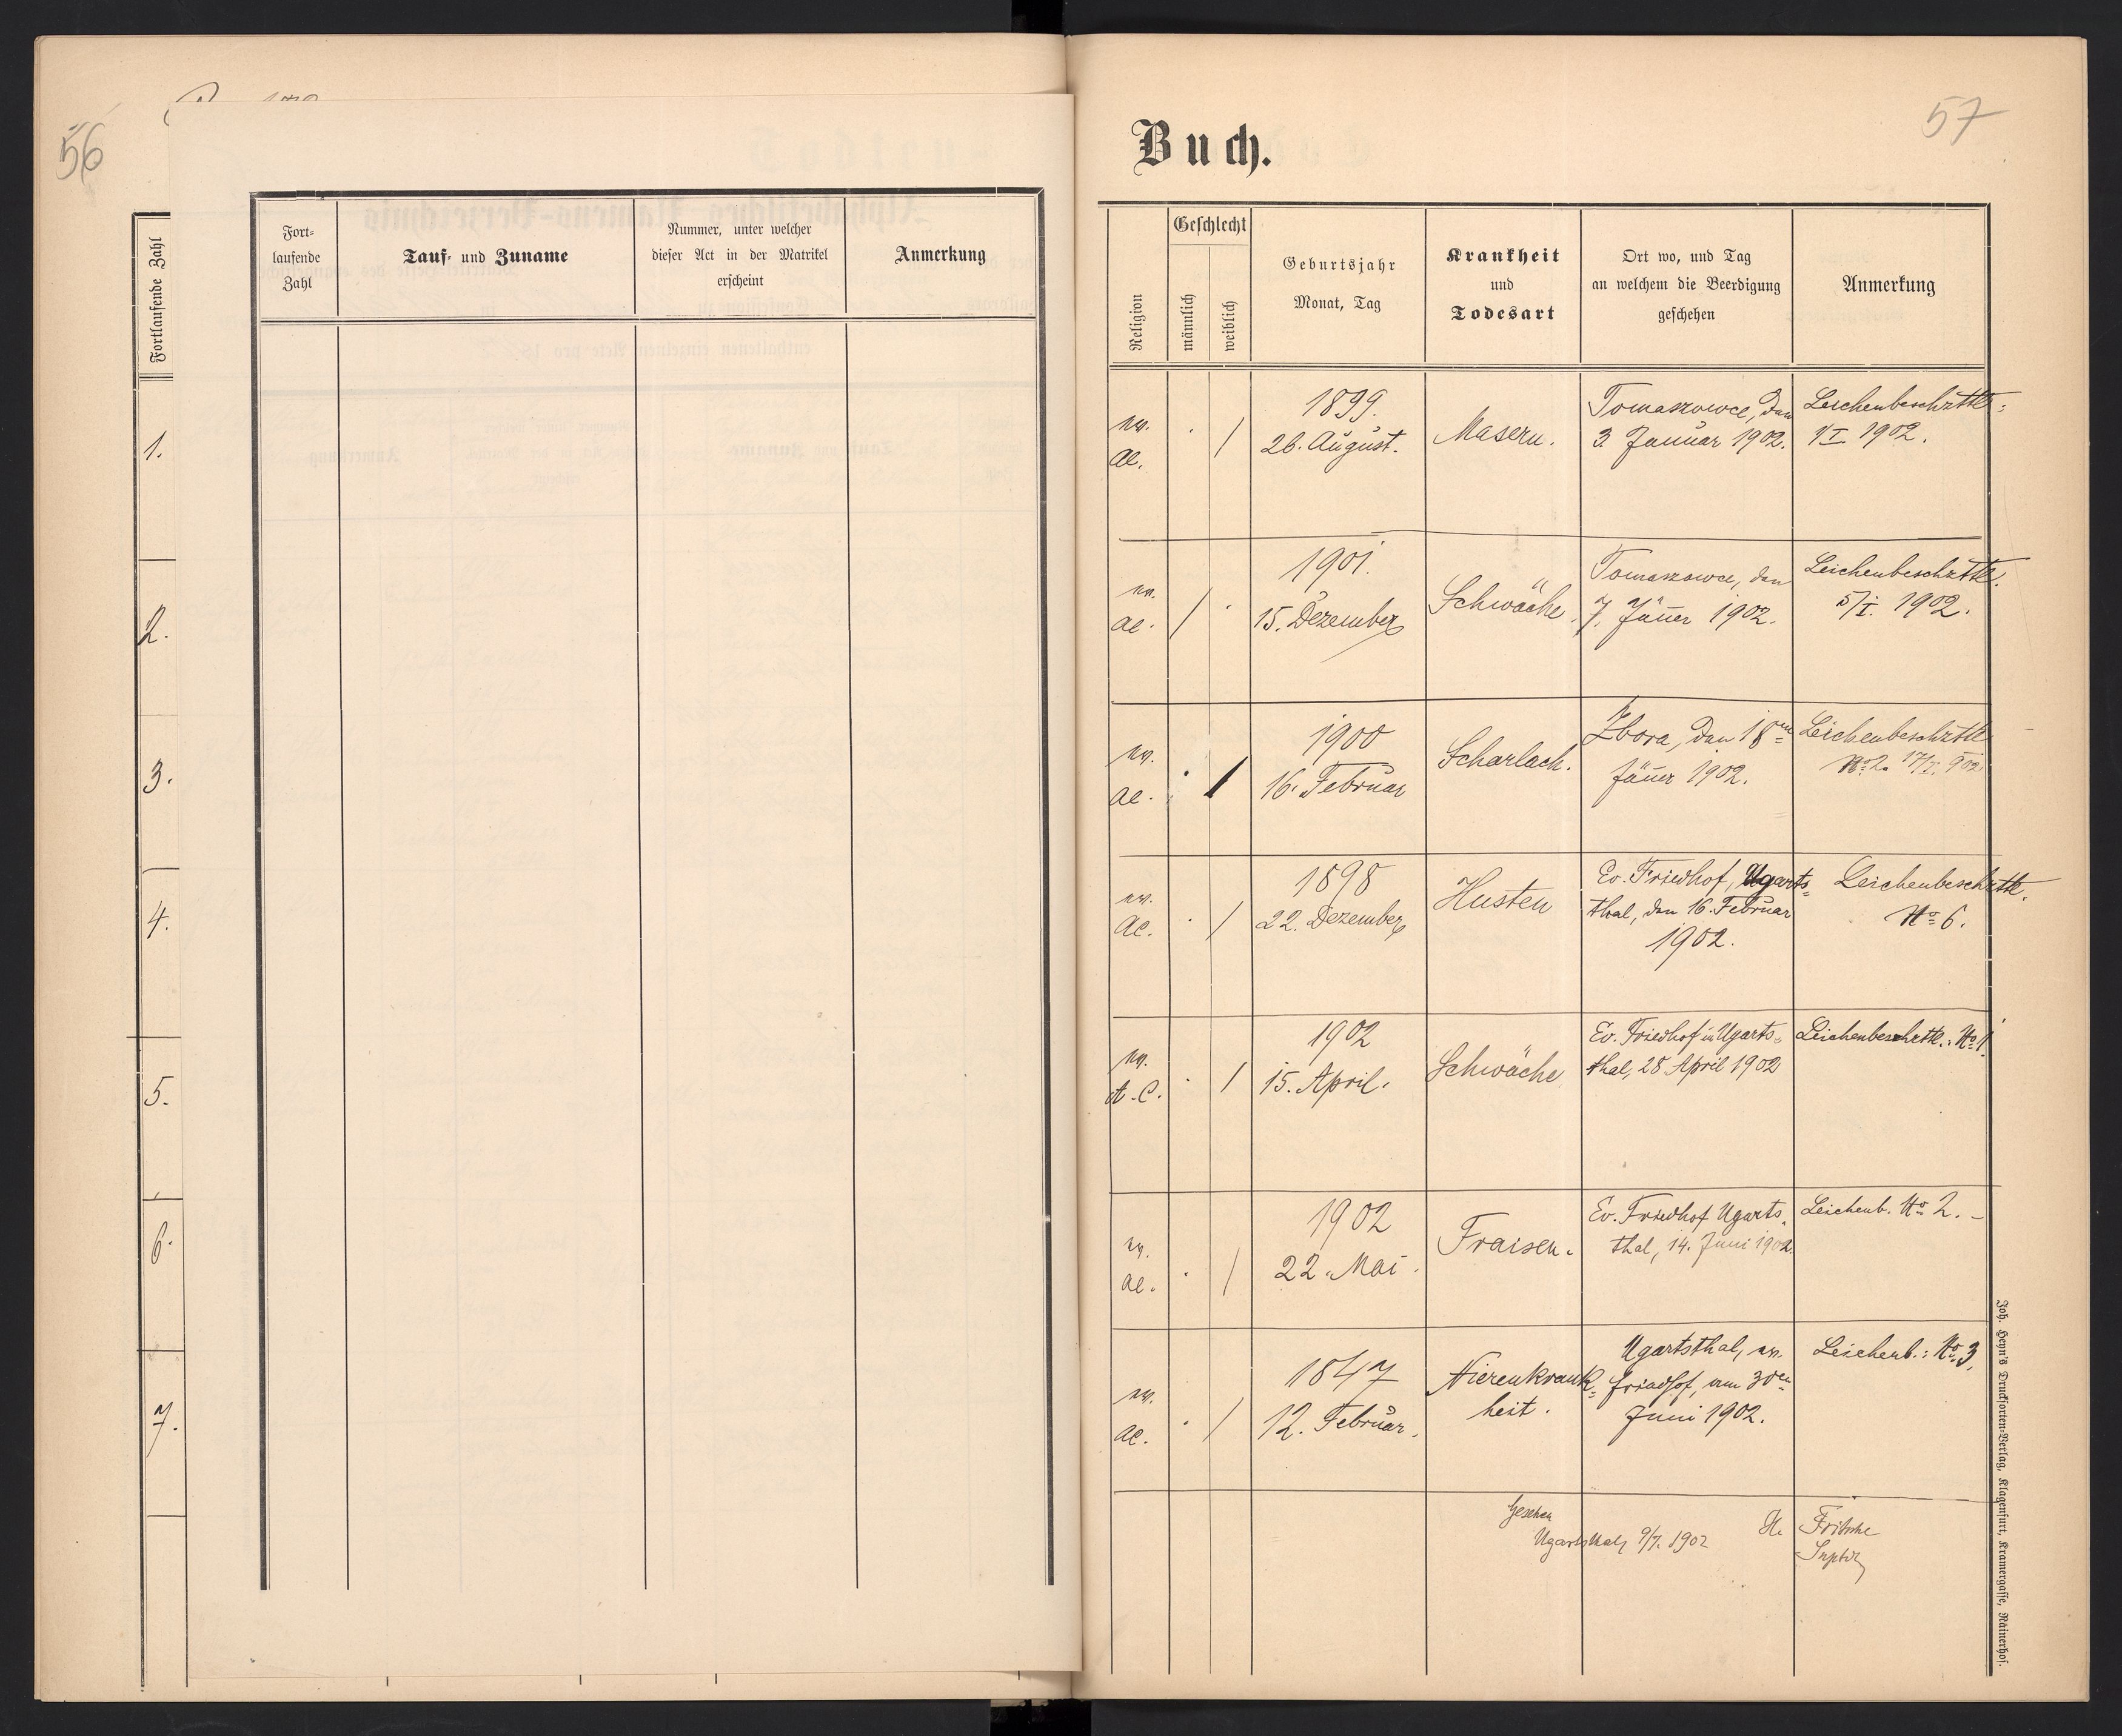 56
Fortlaufende Zahl
1.
2.
3.
4.
5.
6.
7.
Fort-
laufende
Zahl
Tauf- und Zuname
Nummer, unter welcher
dieser Act in der Matrikel
erscheint
Anmerkung
57
Buch.
Religion
Geschlecht
männlich
weiblich
Geburtsjahr
Monat, Tag
Krankheit
und
Todesart
Ort wo, und Tag
an welchem die Beerdigung
geschehen
Anmerkung
ev.
AC.
/
1899.
26. August.
Masern.
Tomaszowce, den
3. Januar 1902.
Leichenbeschrttl:
1/I 1902.
ev.
AC.
/
1901.
15. Dezember
Schwäche.
Tomaszowce, den
7. Jäner 1902.
Leichenbeschrttl.
5/I. 1902.
ev.
AC.
/
1900
16. Februar
Scharlach.
Zbora, den 18ten
Jäner 1902.
Leichenbeschrttl
No 2. 17/I. 902.
ev.
AC.
/
1898
22. Dezember
Husten
Ev. Friedhof, Ugarts-
thal, den 16. Februar
1902.
Leichenbeschrttl.
No 6.
ev.
A.C.
/
1902
15. April.
Schwäche
Ev. Friedhof in Ugarts-
thal, 28 April 1902
Leichenbeschrttl.: No 1.
ev.
AC.
/
1902
22. Mai.
Fraisen.
Ev. Friedhof Ugarts-
thal, 14. Juni 1902.
Leichenb. No 2. -
ev.
AC.
/
1847
12. Februar.
Nierenkrank-
heit.
Ugartsthal, ev.
Friedhof, am 30en
Juni 1902.
Leichenb.: No 3.
Gesehen
Ugartsthal, 9/7. 1902
Fritsche
Suptdt
Joh. Heyn's Drucksorten-Verlag, Klagenfurt, Kramergasse, Rainerhof.